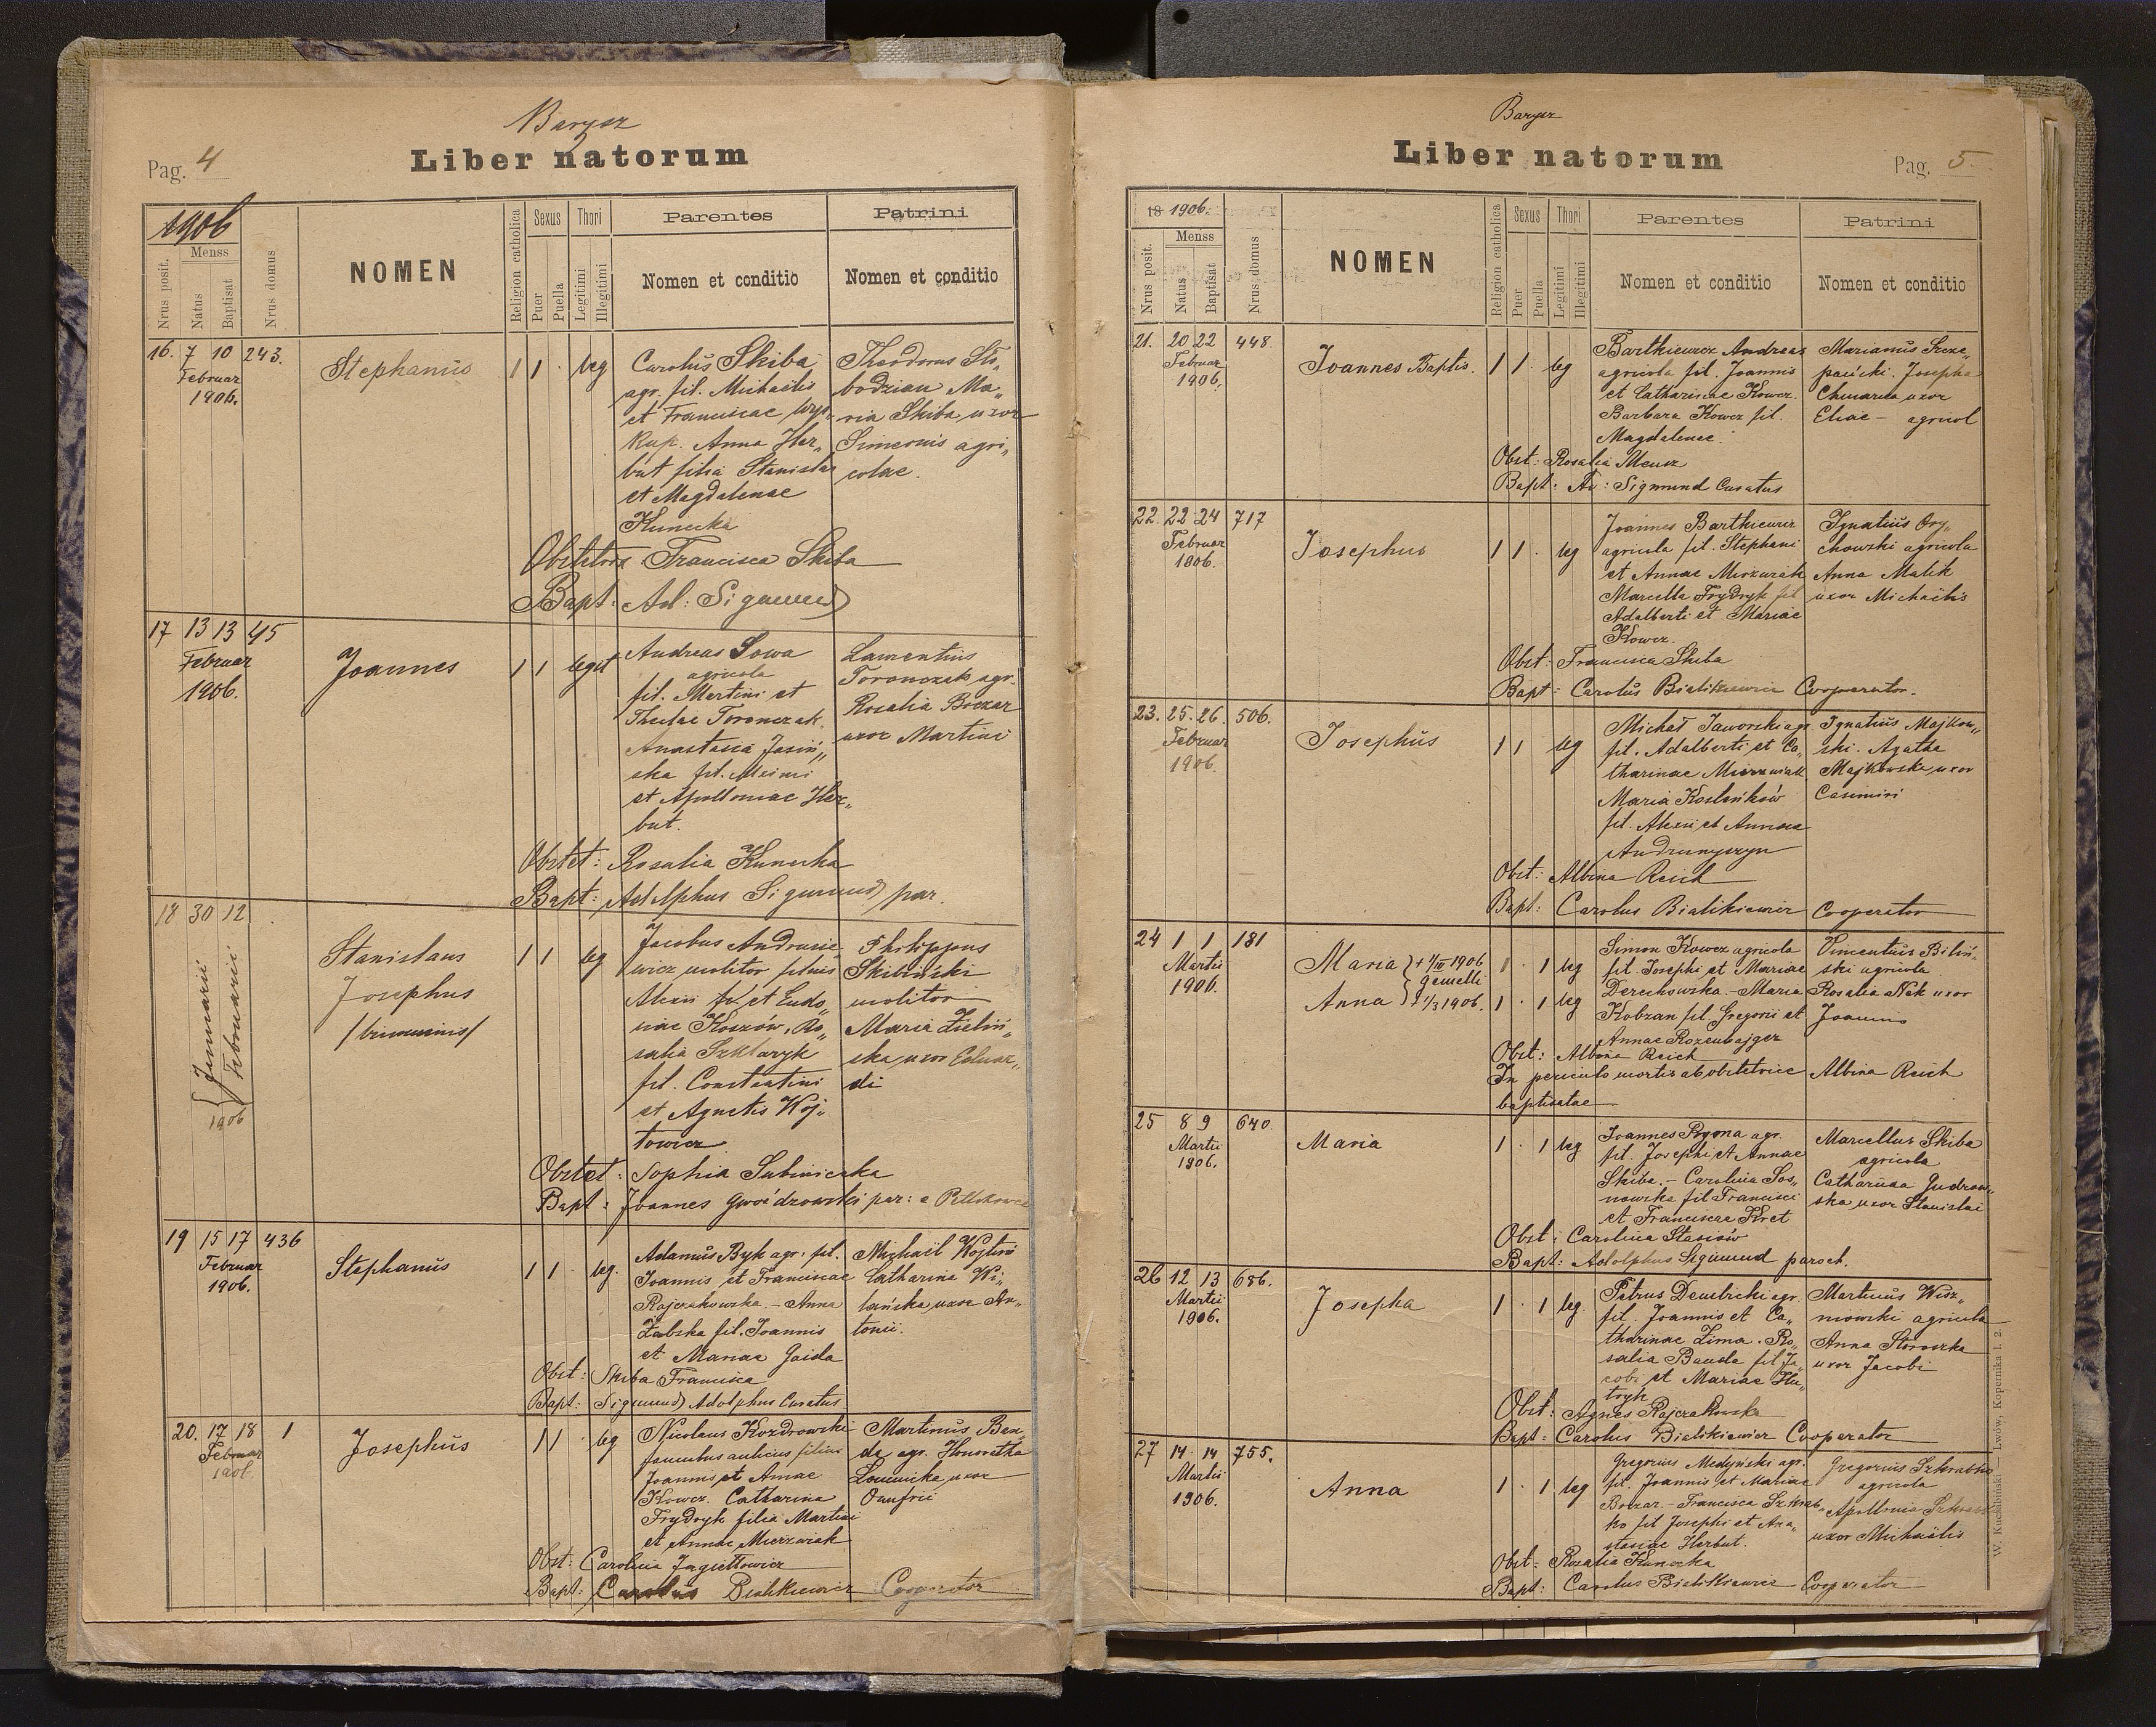 Barysz
Pag. 4
Liber natorum
1906
Menss
Nrus posit.
Natus
Baptisat
Nrus domus
NOMEN
Religion catholica
Sexus
Puer
Puella
Thori
Legitimi
Illegitimi
Parentes
Nomen et conditio
Patrini
Nomen et conditio
16. 7 10 243.
Februar
1906.
Stephanus
1 1 leg
Carolus Skiba
agr. fil. Michaelis
et Franciscae
Kup. Anna Her„
but filia Stanislai
et Magdalenae
Kunicka
Theodorus Slo„
bodzian Ma„
ria Skiba uxor
Simeonis agri„
colae.
Obstetrix Francisca Skiba
Bapt: Ad: Sigmund
17 13 13 45
Februar
1906.
Joannes
1 1 legit
Andreas Sowa
agricola
fil. Martini et
Theclae Toronczak.
Anastasia Jasiń„
ska fil.
et Apolloniae Her„
but.
Laurentius
Toronczak agr.
Rosalia Boczar
uxor Martini
Obstet: Rosalia Kunicka
Bapt: Adolphus Sigmund par.
18 30 12
Januarii
Februarii
1906
Stanislaus
Josephus
/binominis/
1 1 leg
Jacobus Andrusie
wicz molitor filius
Alexii et Eudo„
xiae Koszów, Ro„
salia Szklaryk
fil. Constantini
et Agnetis Woj„
towicz
Philippus
Skibiński
molitor
Maria Zieliń„
ska uxor Eduar„
di
Obstet: Sophia
Bapt: Joannes Gwoździowski par: a
19 15 17 436
Februar
1906.
Stephanus
1 1 leg.
Adamus Byk agr. fil.
Joannis et Franciscae
Rajczakowska. - Anna
Zabska fil. Joannis
et Mariae Gaida
Michaël Wojtów
Catharina Wi„
lańska uxor An„
tonii.
Obst: Skiba Francisca
Bapt: Sigmund Adolphus Curatus
20. 17 18 1
Februar
1906
Josephus
1 1 leg
Nicolaus Kozdrowski
famulus aulicus filius
Joannis et Annae
Kowcz. Catharina
Frydryk filia Martini
et Annae Mierzwiak
Martinus Ban„
da agr. Honoratha
Lewicka uxor
Onufrii
Obst: Carolina Jagiełłowicz
Bapt: Carolus Bialikiewicz Cooperator
Barysz
Liber natorum
Pag. 5
18 1906.
Menss
Nrus posit.
Natus
Baptisat
Nrus domus
NOMEN
Religion catholica
Sexus
Puer
Puella
Thori
Legitimi
Illegitimi
Parentes
Nomen et conditio
Patrini
Nomen et conditio
21. 20 22 448.
Februar
1906.
Joannes Baptis.
1 1 leg
Barthiewicz Andreas
agricola fil. Joannis
et Catharinae Kowcz.
Barbara Kowcz fil.
Magdalenae.
Marianus Szcze„
pański. Josepha
Chmara uxor
Eliae - agricol
Obst: Rosalia Mensz
Bapt: Ad: Sigmund Curatus
22. 22 24 717
Februar
1906.
Josephus
1 1 leg
Joannes Barthiewicz
agricola fil. Stephani
et Annae Mierzwiak
Marcella Frydryk fil
Adalberti et Mariae
Kowcz.
Ignatius Ory„
chowski agricola
Anna Malik
uxor Michaëlis
Obst: Francisca Skiba
Bapt: Carolus Bialikiewicz Cooperator.
23. 25. 26. 506.
Februar
1906.
Josephus
1 1 leg
Michał Jaworski agr
fil. Adalberti et Ca„
tharinae Mierzwiak
Maria
fil. Alexii et Annae
Andruszyszyn
Ignatius Majkow„
ski. Agatha
Majkowska uxor
Casimiri
Obst: Albina Reich
Bapt: Carolus Bialikiewicz Cooperator
24 1 1 181
Martii
1906.
Maria } + 1/III 1906
gemelli
Anna } + 1/3 1906.
1 1 leg
1 1 leg
Simon Kowcz agricola
fil. Josephi et Mariae
Derechowska. - Maria
Kobzan fil. Gregorii et
Annae Rozenbajger
Vincentius Biliń„
ski agricola
Rosalia Nek uxor
Joannis
Obst: Albina Reich
In periculo mortis ab obstetrice
baptisatae
Albina Reich
25 8 9 640.
Martii
1906.
Maria
1 1 leg
Joannes agr.
fil. Josephi et Annae
Skiba. - Carolina Sos„
nowska fil Francisci
et Franciscae Kret
Marcellus Skiba
agricola
Catharina Gudrow„
ska uxor Stanislai
Obst: Carolina Stasiów
Bapt: Adolphus Sigmund paroch.
26 12 13 686.
Martii
1906.
Josepha
1 1 leg.
Petrus Dembicki agr.
fil. Joannis et Ca„
tharinae Zima. Ro„
salia Banda fil Ja„
cobi et Mariae Hu„
tryk
Martinus Wisz„
niowski agricola
Anna Storoszka
uxor Jacobi
Obst: Agnes Rajczakowska
Bapt: Carolus Bialikiewicz Cooperator
27 14 14 755.
Martii
1906.
Anna
1 1 leg
Gregorius Medyński agr.
fil. Joannis et Mariae
Boczar. - Francisca Szkrab„
ko fil Josephi et Ana„
stasiae Herbut.
Gregorius Szkrabko
agricola
Apollonia
uxor Michaëlis
Obst: Rosalia Kunicka
Bapt: Carolus Bialikiewicz Cooperator
W. Kuczabiński Lwów, Kopernika l. 2.